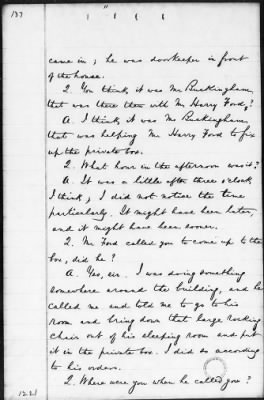 137
came in; he was doorkeeper in front
of the house.
Q. You think it was Mr Buckingham
that was there then with Mr Harry Ford?
A. I think it was Mr Buckingham
that was helping Mr Harry Ford to fix
up the private box.
Q. What hour in the afternoon was it?
A. It was a little after three o'clock,
I think; I did not notice the time
particularly. It might have been later,
and it might have been sooner.
Q. Mr Ford called you to come up to the
box, did he?
A. Yes, sir. I was doing something
somewhere around the building, and he
called me and told me to go to his
room and bring down that large rocking
chair out of his sleeping room and put
it in the private box. I did so according
to his orders.
Q. Where were you when he called you?